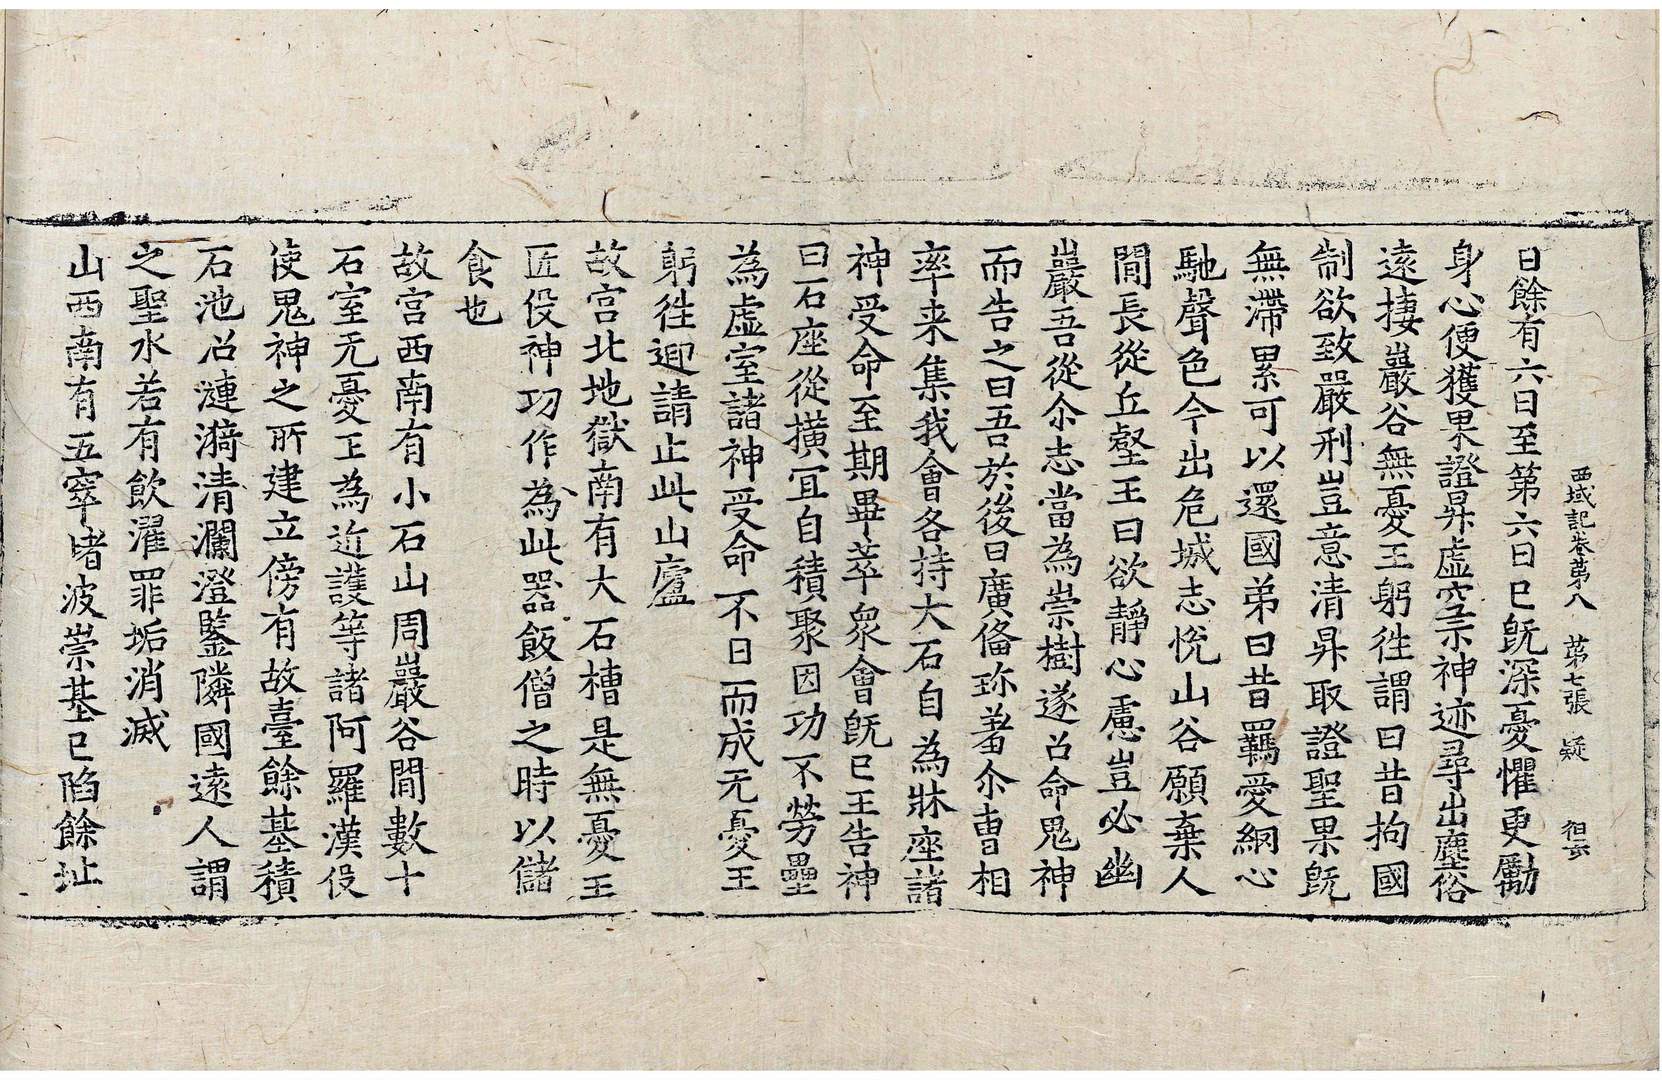 西域記卷第八 第七張 疑
日餘有六日至第六日已旣深憂懼更勵
身心便獲果證昇虛空示神迹尋出塵俗
遠捿巖谷無憂王躬徃謂曰昔拘國
制欲致嚴刑豈意清昇取證聖果旣
無滯累可以還國弟曰昔羈愛網心
馳聲色今出危城志恱山谷願棄人
閒長從丘壑王曰欲靜心慮豈必幽
巖吾從尒志當為崇樹遂召命鬼神
而告之曰吾於後日廣俻珎羞尒曹相
率来集我會各持大石自為牀座諸
神受命至期畢萃衆會旣已王告神
曰石座從撗冝自積聚因功不勞壘
為虛室諸神受命不日而成无憂王
躬徃迎請止此山廬
故宫北地獄南有大石槽是無憂王
匠役神功作為此器飯僧之時以儲
食也
故宫西南有小石山周巖谷閒數十
石室无憂王為近護等諸阿羅漢役
使鬼神之所建立傍有故臺餘基積
石池沼漣漪清瀾澄鑒隣國遠人謂
之聖水若有飲濯罪垢消滅
山西南有五窣堵波崇基已陷餘址